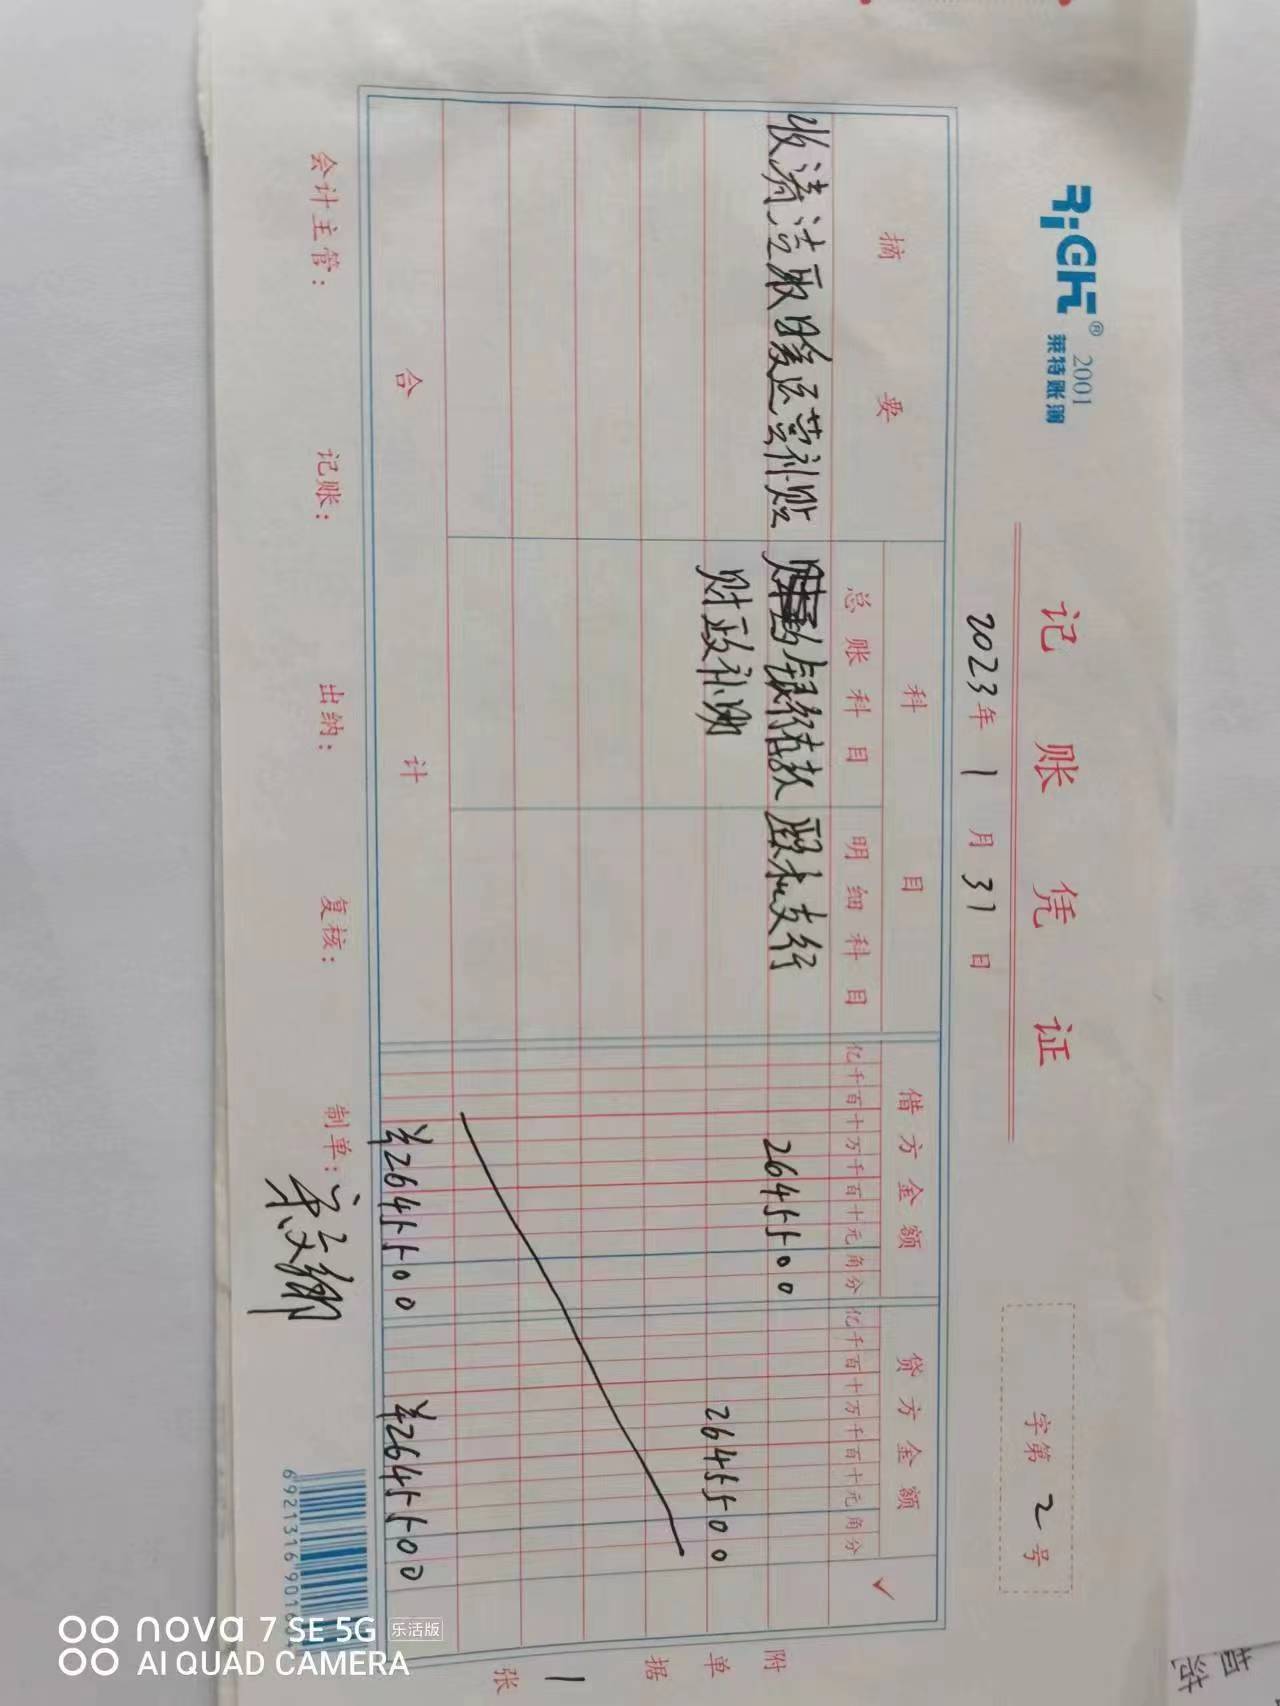 RiGHT® 2001
莱特账簿
记账凭证
2023年1月31日
字第2号
摘要
科目
借方金额
贷方金额
✓
总账科目
明细科目
亿千百十万千百十元角分
亿千百十万千百十元角分
收清洁取暖运营补贴
银行存款
支行
2645500
财政补助
2645500
合计
¥2645500
¥2645500
附单据1张
会计主管:
记账:
出纳:
复核:
制单:
6921316901
nova 7 SE 5G 乐活版
AI QUAD CAMERA